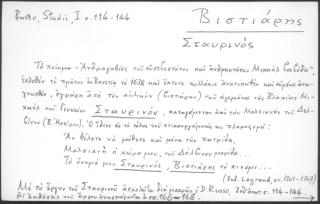 Russo, Studii I σ. 114-144
Βιστιάρης
Σταυρινός
Τὸ ποίημα "Ἀνδραγαθίες τοῦ εὐσεβεστάτου καὶ ἀνδρειοτάτου Μιχαὴλ βοεβόδα",
ἐκδοθὲν τὸ πρῶτον ἐν Βενετίᾳ τὸ 1638 καὶ ἔκτοτε πολλάκις ἀνατυπωθὲν καὶ εὐρέως
γνωσθέν, ἐγράφη ἀπὸ τὸν αὐλικὸν (βιστιάρην) τοῦ ἡγεμόνος τῆς Βλαχίας Μι-
χαὴλ τοῦ Γενναίου Σταυρινόν, καταγόμενον ἀπὸ τὴν Μαλσιανὴν τοῦ Δελ-
βίνου (Β. Ἠπείρου). Ὁ ἴδιος εἰς τὸ τέλος τοῦ στιχουργήματός του πληροφορεῖ:
Ἂν θέλετε νὰ μάθετε καὶ μένα τὴν πατρίδα,
Μαλσιανὴ ἡ χώρα μου, τοῦ Δελβίνου μερίδα...
Τὸ ὄνομά μου Σταυρινός, Βιστιάρης τὸ πινόμι...
(ἔκδ. Legrand, στ. 1301-1307)
Μὲ τὸ ἔργον τοῦ Σταυρινοῦ ἀσχολεῖται διὰ μακρῶν ὁ D. Russo, ἔνθ' ἀνωτ. σ. 114-144.
Αἱ ἐκδόσεις τοῦ ἔργου ἀναγράφονται ἐν σσ. 168-168.